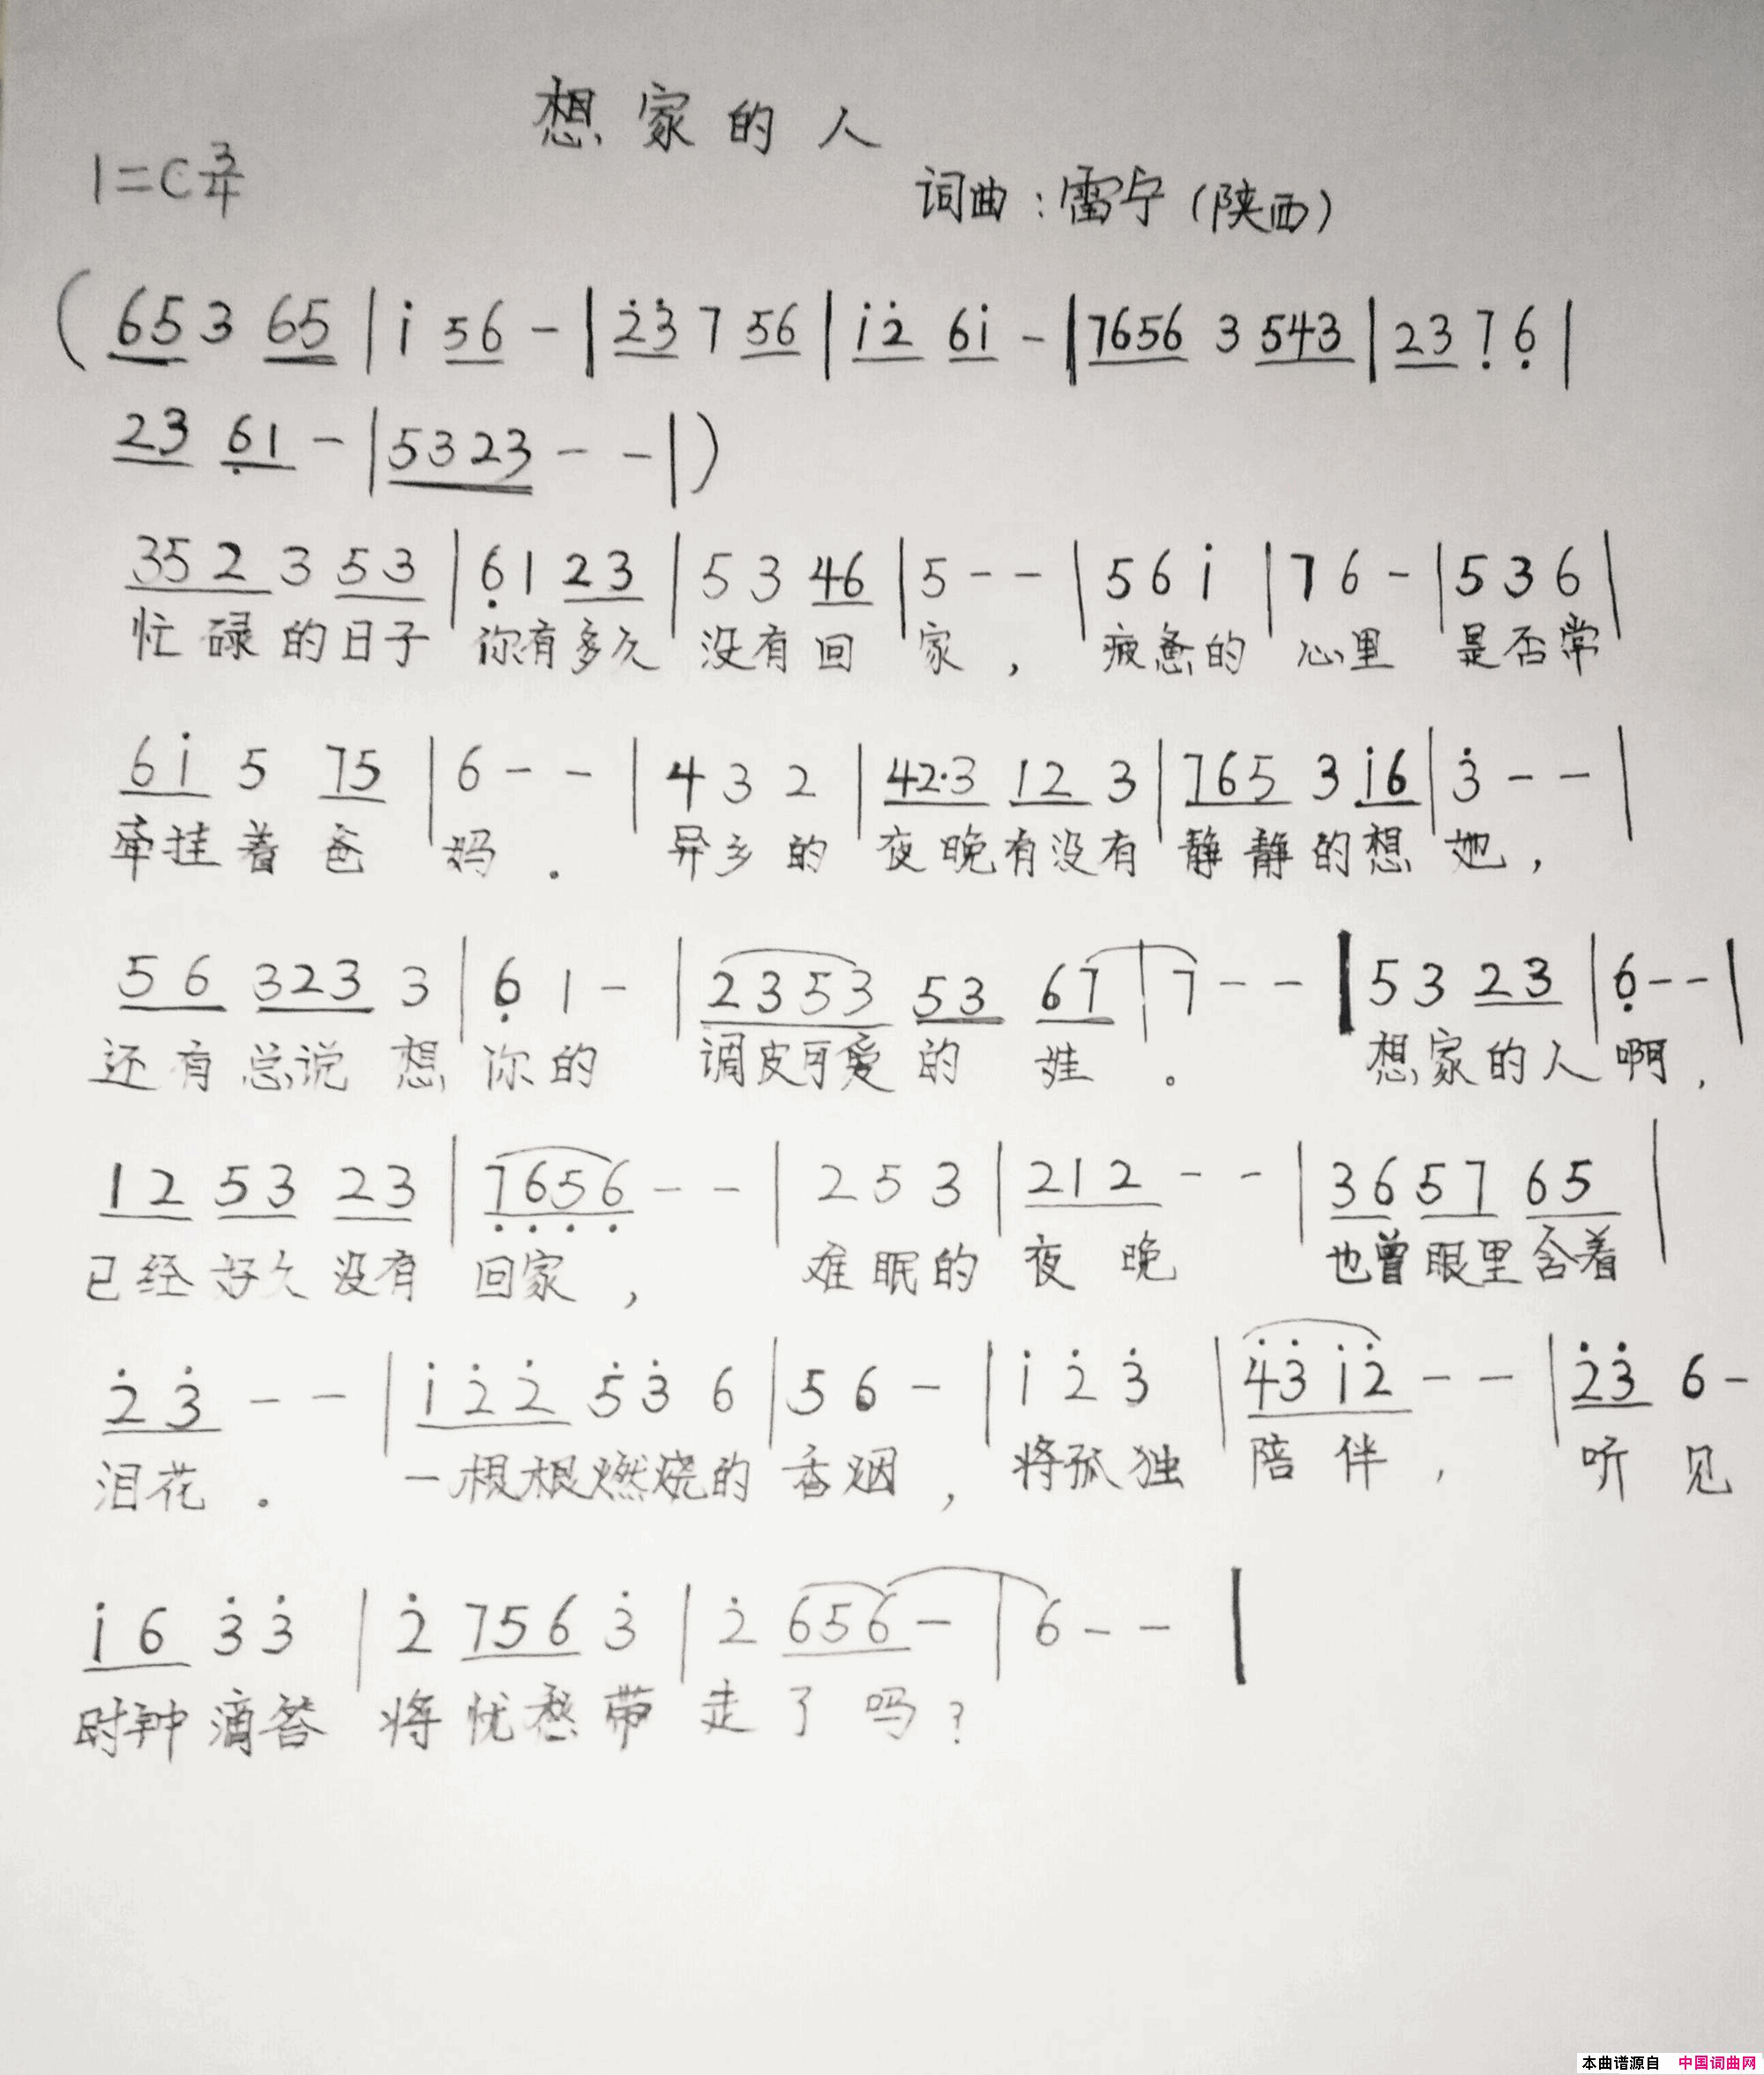 想家的人
1=C 3/4
词曲：雷宁（陕西）
（65 3 65 | i 56 - | 2̇3̇ 7 56 | i2̇ 6i - | 7656 3 543 | 23 7̣ 6̣ |
23 6̣1 - | 5323 - - |）
35 2 3 53 | 6̣ 1 23 | 5 3 46 | 5 - - | 5 6 i | 7 6 - | 5 3 6 |
忙碌的日子 你有多久 没有回家， 疲惫的 心里 是否常
6i 5 75 | 6 - - | 4 3 2 | 42·3 12 3 | 765 3 i6 | 3̇ - - |
牵挂着爸 妈. 异乡的 夜晚有没有 静静的想 她，
56 323 3 | 6̣ 1 - | 2353 53 67 | 7 - - | 5 3 23 | 6̣ - - |
还有总说想 你的 调皮可爱的 娃。 想家的人 啊，
12 53 23 | 7̣6̣5̣6̣ - - | 2 5 3 | 212 - - | 36 57 65 |
已经好久没有 回家， 难眠的 夜晚 也曾眼里含着
2̇3̇ - - | i2̇2̇ 5̇3̇ 6 | 5 6 - | i 2̇ 3̇ | 4̇3̇i2̇ - - | 2̇3̇ 6 -
泪花. 一根根燃烧的 香烟， 将孤独 陪伴， 听见
i6 3̇3̇ | 2̇ 756 3̇ | 2̇ 656 - | 6 - - |
时钟滴答 将忧愁带 走了吗？
本曲谱源自 中国词曲网